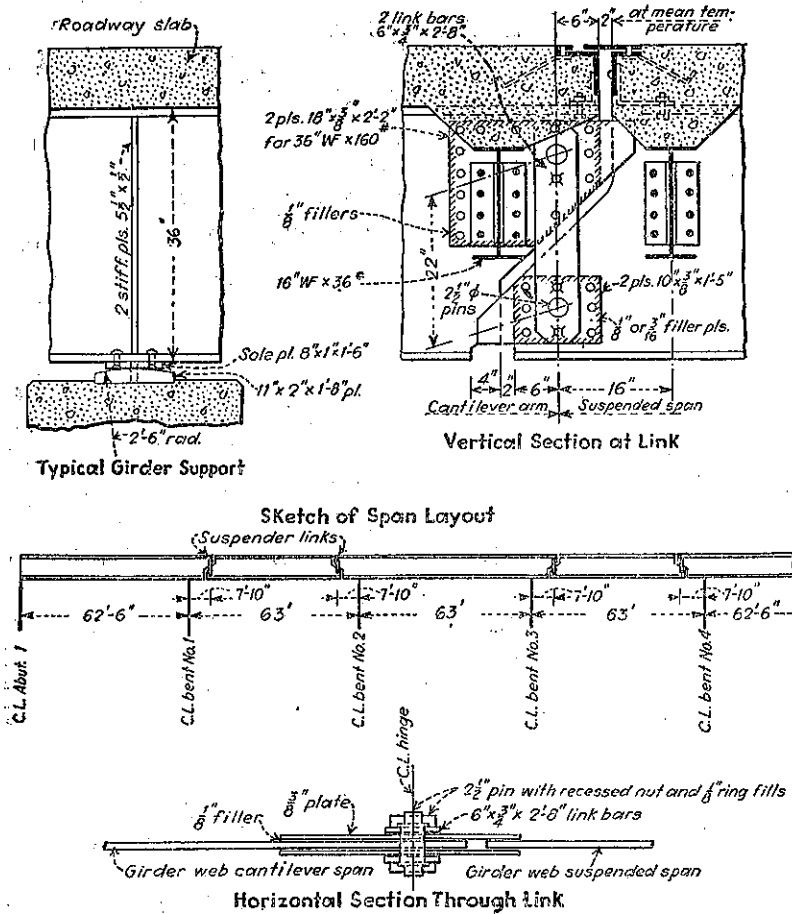 Roadway slab
2 stiff. pls. 5½" x ½"
36"
Sole pl. 8" x 1" x 1'-6"
11" x 2" x 1'-8" pl.
2'-6" rad.
Typical Girder Support
2 link bars
6" x ¾" x 2'-8"
6"
2"
at mean tem-
perature
2 pls. 18" x ⅜" x 2'-2"
for 36" WF x 160#
⅛" fillers
22"
16" WF x 36#
2½" φ
pins
2 pls. 10" x ⅜" x 1'-5"
⅛" or 3/16" filler pls.
4"
2"
6"
16"
Cantilever arm
Suspended span
Vertical Section at Link
Sketch of Span Layout
Suspender links
7'-10"
7'-10"
7'-10"
7'-10"
62'-6"
63'
63'
63'
62'-6"
C.L. Abut. 1
C.L. bent No.1
C.L. bent No.2
C.L. bent No.3
C.L. bent No.4
C.L. hinge
⅛" filler
⅜" plate
2½" pin with recessed nut and ⅛" ring fills
6" x ¾" x 2'-8" link bars
Girder web cantilever span
Girder web suspended span
Horizontal Section Through Link